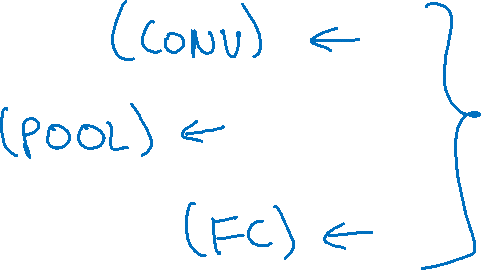 (CONV) ←
(POOL) ←
(FC) ←